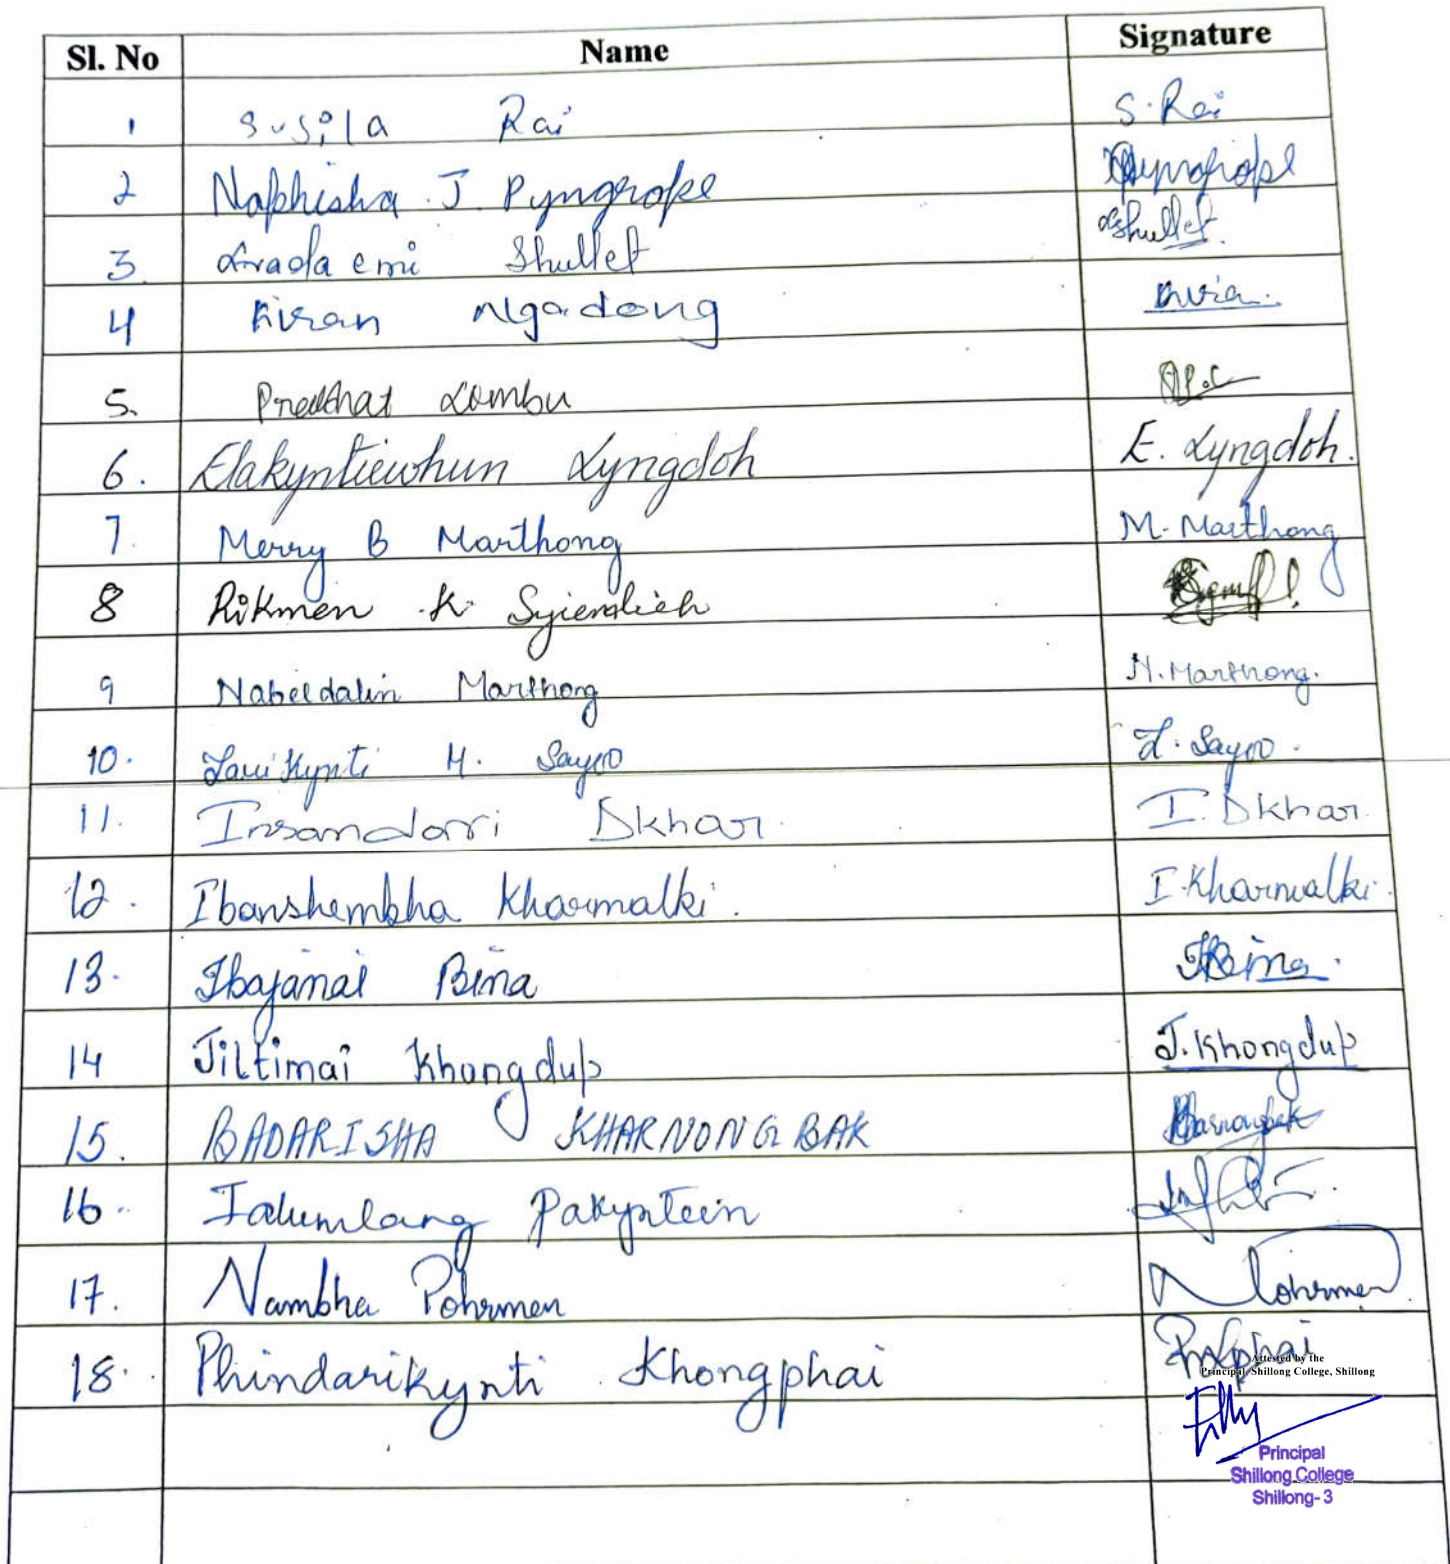 Sl. No Name Signature
1 Susila Rai S. Rai
2 Naphisha J. Pyngrope Pyngrope
3 Shullet Shullet
4 Kiran Ngadong
5. Lombu
6. Elakyntiewhun Lyngdoh E. Lyngdoh.
7. Merry B Marthong M. Marthong
8 Rikmen K Syiemlieh
9 Nabeldalin Marthong N. Marthong.
10. H. Sayoo L. Sayoo.
11. Insandorri Dkhar. I. Dkhar.
12. Ibanshembha Kharmalki. I. Kharmalki.
13. Ibajanai Bina Bina.
14 Jiltimai Khongdup J. Khongdup
15. BADARISHA KHARNONGBAK Kharnongbak
16. Ialumlang Pakyntein
17. Nambha Pohrmen N Pohrmen
18. Phindarikynti Khongphai
Attested by the
Principal, Shillong College, Shillong
Principal
Shillong College
Shillong- 3